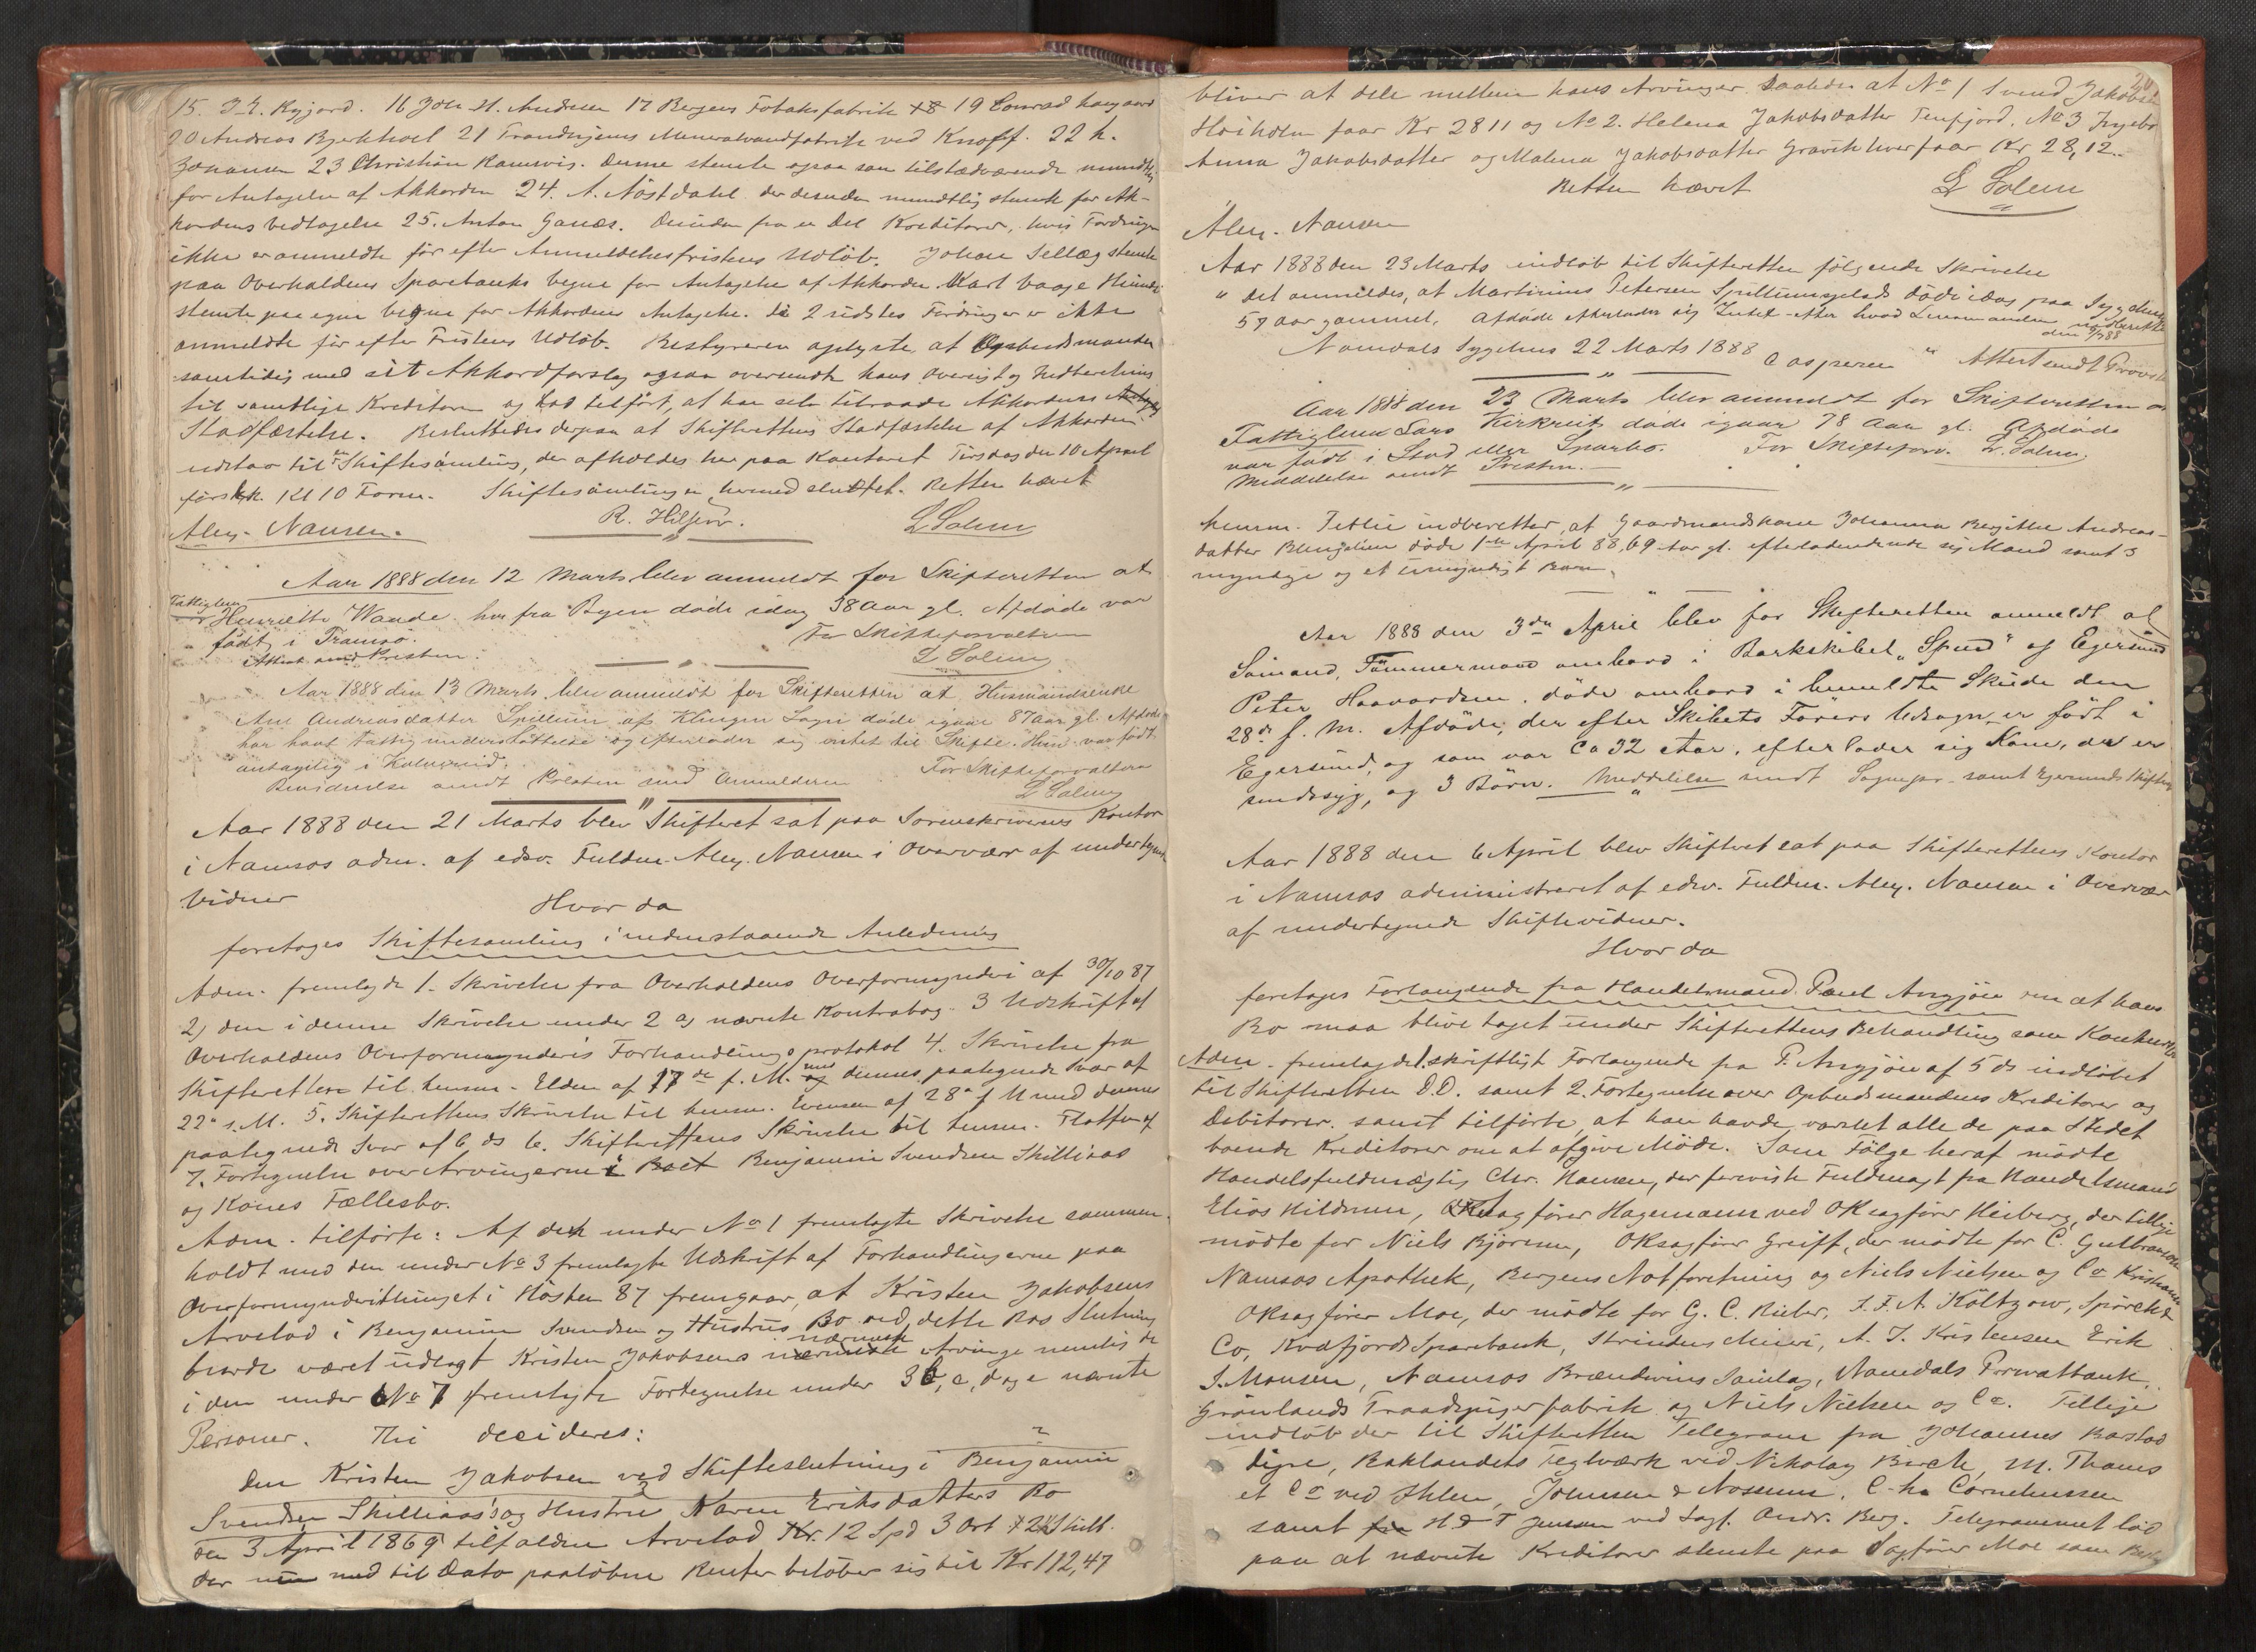 15. J. E. Kyjord. 16 Joh. H. Andresen 17 Bergens Tobaksfabrik 18 19 Conrad
20 Andreas Bjerkhoel 21 Trondhjems Mineralvandfabrik ved Knoff. 22 K.
Johansen 23 Christian Ramsvig. Denne stemte ogsaa som tilstedeværende mundtlig
for Antagelse af Akkorden 24. A. Nöstdahl der desuden mundtlig stemte for Ak-
kordens Vedtagelse 25. Anton Ganæs. Desuden fra en Del Kreditorer, hvis Fordringer
ikke er anmeldte för efter Anmeldelsesfristens Udlöb. Johan Sellæg stemte
paa Overhaldens Sparebanks vegne for Antagelse af Akkorden. Karl
stemte paa egne vegne for Akkordens Antagelse. De 2 sidstes Fordringer er ikke
anmeldte för efter Fristens Udlöb. Bestyreren oplyste, at Opbudsmanden
samtidig med sit Akkordforslag ogsaa oversendte hans Oversigt og Indberetning
til samtlige Kreditorer og lod tilfört, at han selv tilraade Akkordens
Stadfæstelse. Besluttedes derpaa at Skifterettens Stadfæstelse af Akkorden
udstaar til en Skiftesamling, der afholdes her paa Kontoret Tirsdag den 10 April
förstk. Kl 10 Form. Skiftesamlingen hermed sluttet. Retten hævet
Alex. Nansen. R. Hilstrøm. L Solem
Aar 1888 den 12 Marts blev anmeldt for Skifteretten at
Fattiglem
Henriette Wande her fra Byen döde idag 38 Aar gl. Afdöde var
födt i Tromsö. For Skifteforvalteren
Attest sendt Presten. L Solem
Aar 1888 den 13 Marts blev anmeldt for Skifteretten at Husmandsenke
Ane Andreasdatter Spillum af Klingen Sogn döde igaar 87 Aar gl. Afdöde
har havt Fattigunderstöttelse og efterlader sig intet til Skifte. Hun var födt
antagelig i Kolvereid. For Skifteforvalteren
Bevidnelse sendt Presten med Anmelderen L Solem
Aar 1888 den 21 Marts blev Skifteret sat paa Sorenskriverens Kontor
i Namsos adm. af edsv. Fuldm. Alex. Nansen i Overvær af undertegnede
Vidner
Hvor da
foretages Skiftesamling i nedenstaaende Anledning
Adm. fremlagde 1. Skrivelse fra Overhaldens Overformynderi af 30/10 87
2) den i denne Skrivelse under 2 og nævnte Kontrabog. 3 Udskrift af
Overhaldens Overformynderis Forhandlingsprotokol 4. Skrivelse fra
Skifteretten til Lensm. Elden af 17de f. M. med dennes paategnede Svar af
22de s. M. 5. Skifterettens Skrivelse til Lensm. Evensen af 28de f M med dennes
paategnede Svar af 6 ds 6. Skifterettens Skrivelse til Lensm. Flotten af
7. Fortegnelse over Arvingerne i Boet Benjamin Svendsen Skilliaas
og Kones Fællesbo.
Adm. tilförte: Af den under No 1 fremlagte Skrivelse sammen-
holdt med den under No 3 fremlagte Udskrift af Forhandlingerne paa
Overformynderithinget i Hösten 87 fremgaar, at Kristen Jakobsens
Arvelod i Benjamin Svendsen og Hustrus Bo ved dette Bos Slutning
burde været udlagt Kristen Jakobsens nærmeste Arvinge nemlig de
i den under No 7 fremlagte Fortegnelse under 3 b, c, d og e nævnte
Personer. Thi decideres:
Den Kristen Jakobsen ved Skifteslutning i Benjamin
Svendsen Skilliaas's og Hustru Karen Eriksdatters Bo
den 3 April 1869 tilfaldne Arvelod 12 Spd 3 Ort Skill.
der med til Dato paalöbne Renter belöber sig til Kr 112,47
20
bliver at dele mellem hans Arvinger saaledes at No 1 Svend Jakobsen
Höiholm faar Kr 28 11 og No 2. Helena Jakobsdatter Tenfjord. No 3 Ingebor
Anna Jakobsdatter og Malena Jakobsdatter Gravik hver faar Kr 28,12..
Retten hævet L Solem
Alex. Nansen
Aar 1888 den 23 Marts indlöb til Skifteretten fölgende Skrivelse
" Det anmeldes, at Martinius Petersen Spillumsplads döde idag paa Sygehuset
57 Aar gammel. Afdöde efterlader sig Intet efter hvad Lensmanden
Namdals Sygehus 22 Marts 1888 Caspersen " Attest sendt Provsten
Aar 1888 den 23 Marts blev anmeldt for Skifteretten at
Fattiglem Lars Kirkreit döde igaar 78 Aar gl. Afdöde
var födt i Stod eller Sparbo. For Skifteforv. L. Solem.
Meddelelse sendt Presten.
Lensm. Tetlie indberetter, at Gaardmandskone Johanna Bergitte Andreas-
datter döde 1ste April 88, 69 Aar gl. efterladendende sig Mand samt 3
myndige og et umyndigt Barn.
Aar 1888 den 3de April blev for Skifteretten anmeldt at
Sömand, Tömmermand ombord i Barkskibet "Spud" af Egersund
Peter Haavardsen. döde ombord i bemeldte Skude den
28de f. M. Afdöde, der efter Skibets Förers Udsagn er födt i
Egersund, og som var Ca 32 Aar, efterlader sig Kone, der er
sindssyg, og 3 Börn. Meddelelse sendt Sognepr. samt Egersunds Skifteret
Aar 1888 den 6 April blev Skifteret sat paa Skifterettens Kontor
i Namsos administreret af edsv. Fuldm. Alex. Nansen i Overvær
af undertegnede Skiftevidner.
Hvor da
foretages Forlangende fra Handelsmand Paul Angjön om at hans
Bo maa blive taget under Skifterettens Behandling som Konkursbo
Adm. fremlagde 1. skriftligt Forlangende fra P. Angjön af 5 ds indlöbet
til Skifteretten D.D. samt 2. Fortegnelse over Opbudsmandens Kreditorer og
Debitorer. samt tilförte at han havde varslet alle de paa Stedet
boende Kreditorer om at afgive Möde. Som Fölge heraf mödte
Handelsfuldmægtig Chr. Hansen, der foreviste Fuldmagt fra Handelsmand
Elias Kildrum, OKsagförer Hagemann ved OKsagförer Heiberg, der tillige
mödte for Niels Björnem, OKsagförer Greiff, der mödte for C. Gulbransen
Namsos Apothek, Bergens Notforetning og Niels Nielsen og Co Kristiania
OKsagförer Moe, der mödte for G. C. Rieber, J. F. A. Költzow, Spörck &
Co, Kvafjords Sparebank, Strindens Meieri, A. J. Kristensen Erik
J. Monsen, Namsos Brændevins Samlag, Namdals Privatbank,
Grönlands Traadspigerfabrik og Niels Nielsen og Co. Tillige
indlöb der til Skifteretten Telegram fra Johannes Barstad
Digre, Baklandets Teglværk ved Nikolay Birch, M. Thams
et Co ved Ihlen, Johnsen & Nossum, C. h. Cornelinssen
samt H & T Jenssen ved Sagf. Andr. Berg. Telegrammet löd
paa at nævnte Kreditorer stemte paa Sagförer Moe som